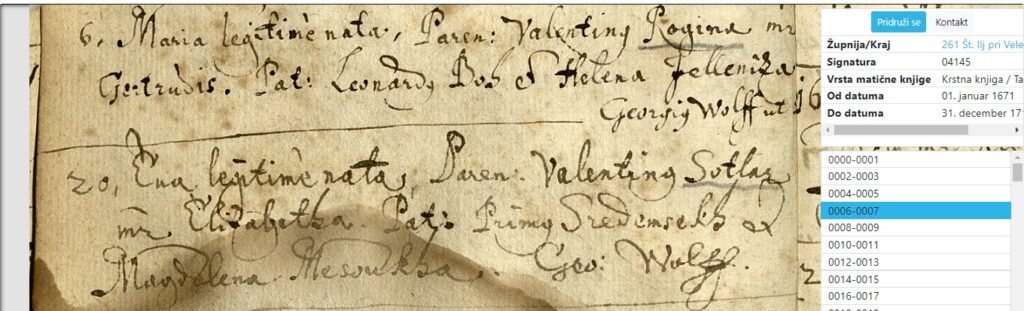 6, Maria legitimè nata, Paren: Valenting Rogina mr
Gertrudis. Pat: Leonardg Bos & Helena Jelleniza.
Georgig Wolff ut
20, Eua legitimè nata, Paren: Valenting Sotlar
mr Elizabetha. Pat: Primg Sredemsekh &
Magdelena Mesoukza. Geo: Wolff.
Pridruži se Kontakt
Župnija/Kraj 261 Št. Ilj pri Vele
Signatura 04145
Vrsta matične knjige Krstna knjiga / Ta
Od datuma 01. januar 1671
Do datuma 31. december 17
0000-0001
0002-0003
0004-0005
0006-0007
0008-0009
0010-0011
0012-0013
0014-0015
0016-0017